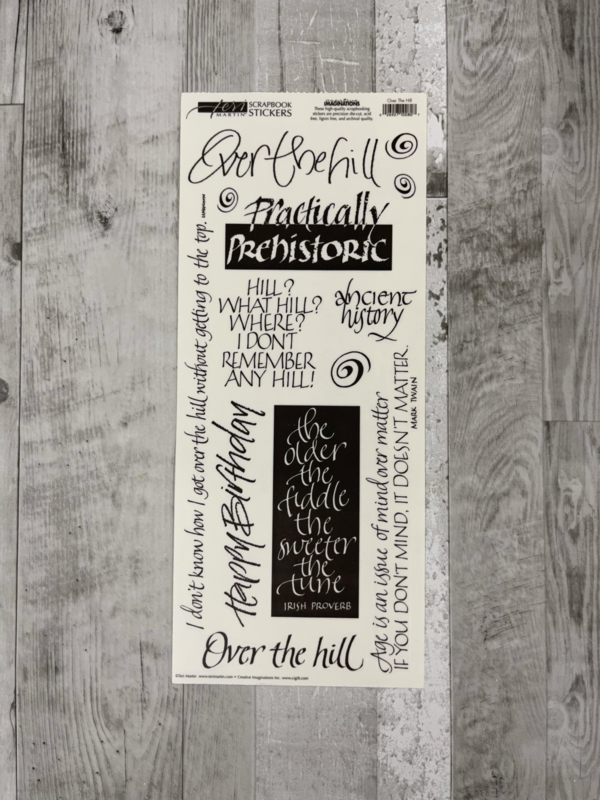 teri
MARTIN
SCRAPBOOK
STICKERS
IMAGINATIONS
These high-quality scrapbooking
stickers are precision die-cut, acid
free, lignin free, and archival quality.
Over The Hill
Over the hill
Practically
PREHISTORIC
HILL?
WHAT HILL?
WHERE?
I DONT
REMEMBER
ANY HILL!
ancient
history
I don't know how I got over the hill without getting to the top.
Happy Birthday
the
older
the
fiddle
the
sweeter
the
tune
IRISH PROVERB
Age is an issue of mind over matter
IF YOU DON'T MIND, IT DOESN'T MATTER.
MARK TWAIN
Over the hill
©Teri Martin www.terimartin.com • Creative Imaginations Inc. www.cigift.com